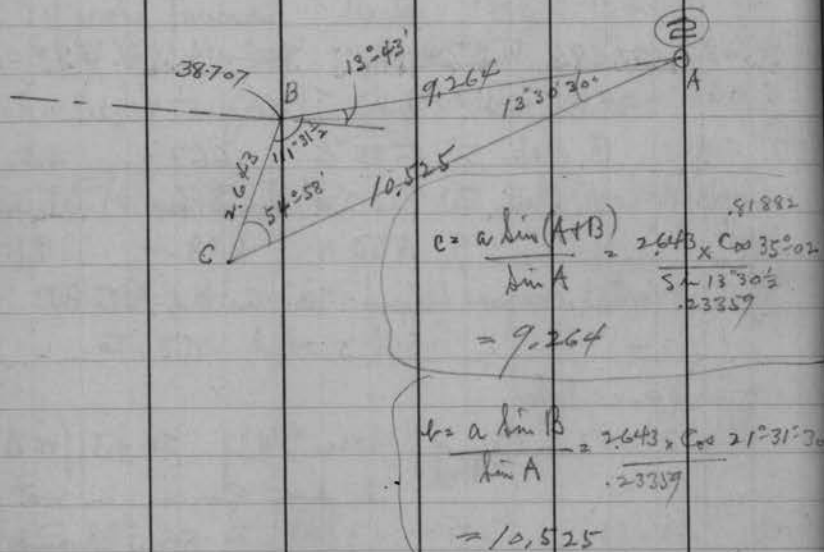 2
38.707
B
13°-43'
9.264
13°30'30"
A
111°-31½
2.643
54°-58'
10.525
C
.81882
c = a Sin (A+B) / Sin A = 2.643 × Cos 35°-02 / Sin 13°30½
.23359
= 9.264
b = a Sin B / Sin A = 2.643 × Cos 21°-31'-30 / .23359
= 10,525